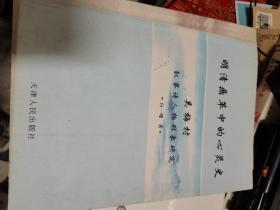 明清鼎革中的心灵史
吴梅村
叙事诗人物形象研究
白一瑾 著
天津人民出版社